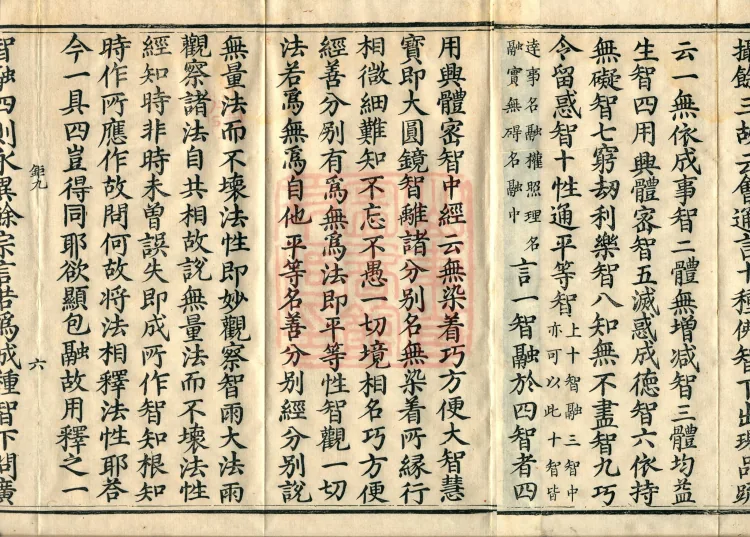 故云會通言十種佛智下出現品頭
云一無依成事智二體無增減智三體均益
生智四用興體密智五滅惑成德智六依持
無礙智七窮劫利樂智八知無不盡智九巧
令留惑智十性通平等智上十智融三智中
亦可以此十智皆
達事名融㩲照理名
融實無碍名融中言一智融於四智者四
用興體密智中經云無染着巧方便大智慧
寳即大圓鏡智離諸分别名無染着所縁行
相微細難知不忘不愚一切境相名巧方便
經善分别有爲無爲法即平等性智觀一切
法若爲無爲自他平等名善分别經分别說
無量法而不壞法性即妙觀察智雨大法雨
觀察諸法自共相故說無量法而不壞法性
經知時非時未曽誤失即成所作智知根知
時作所應作故問何故將法相釋法性耶荅
今一具四豈得同耶欲顯包融故用釋之一
鉅九
六
智融四則永異餘宗言若爲成種智下問廣